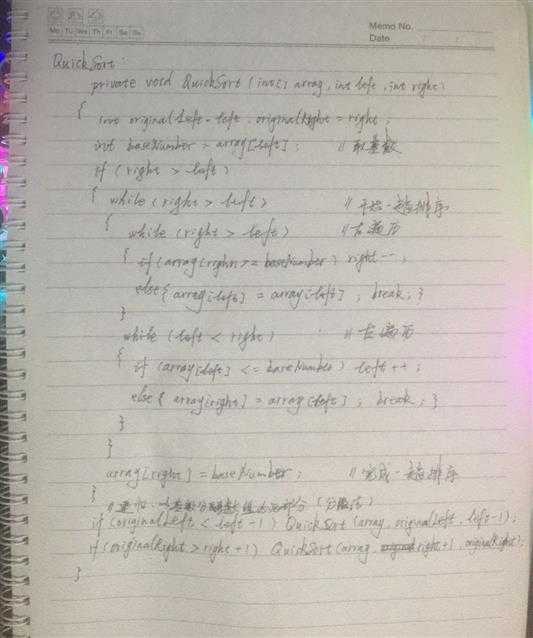 Memo No.
Mo Tu We Th Fr Sa Su
Date
QuickSort:
private void QuickSort (int[] array, int left, int right)
{
int originalLeft = left, originalRight = right;
int baseNumber = array[left]; // 取基数
if (right > left)
{ while (right > left) // 开始一趟排序
{ while (right > left) // 右遍历
{ if (array[right] >= baseNumber) right--;
else{ array[left] = array[left]; break; }
}
while (left < right) // 左遍历
{
if (array[left] <= baseNumber) left++;
else{ array[right] = array[left]; break; }
}
}
array[right] = baseNumber; // 完成一趟排序
}
// 递归
if (originalLeft < left-1) QuickSort (array, originalLeft, left-1);
if (originalRight > right+1) QuickSort (array, right+1, originalRight);
}